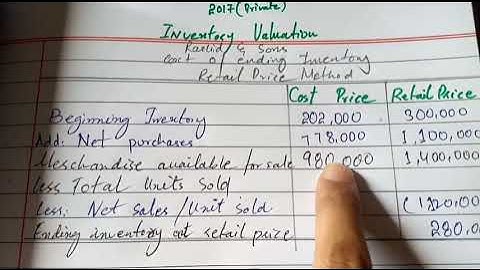 2017 (Private)
Inventory Valuation
Rashid & Sons
Cost of ending Inventory
Retail Price Method
Cost Price Retail Price
Beginning Inventory 202,000 300,000
Add: Net purchases 778,000 1,100,000
Merchandise available for sale 980,000 1,400,000
Less Total Units Sold
Less: Net sales/Unit sold (1,120,00
Ending inventory at retail price 280,0